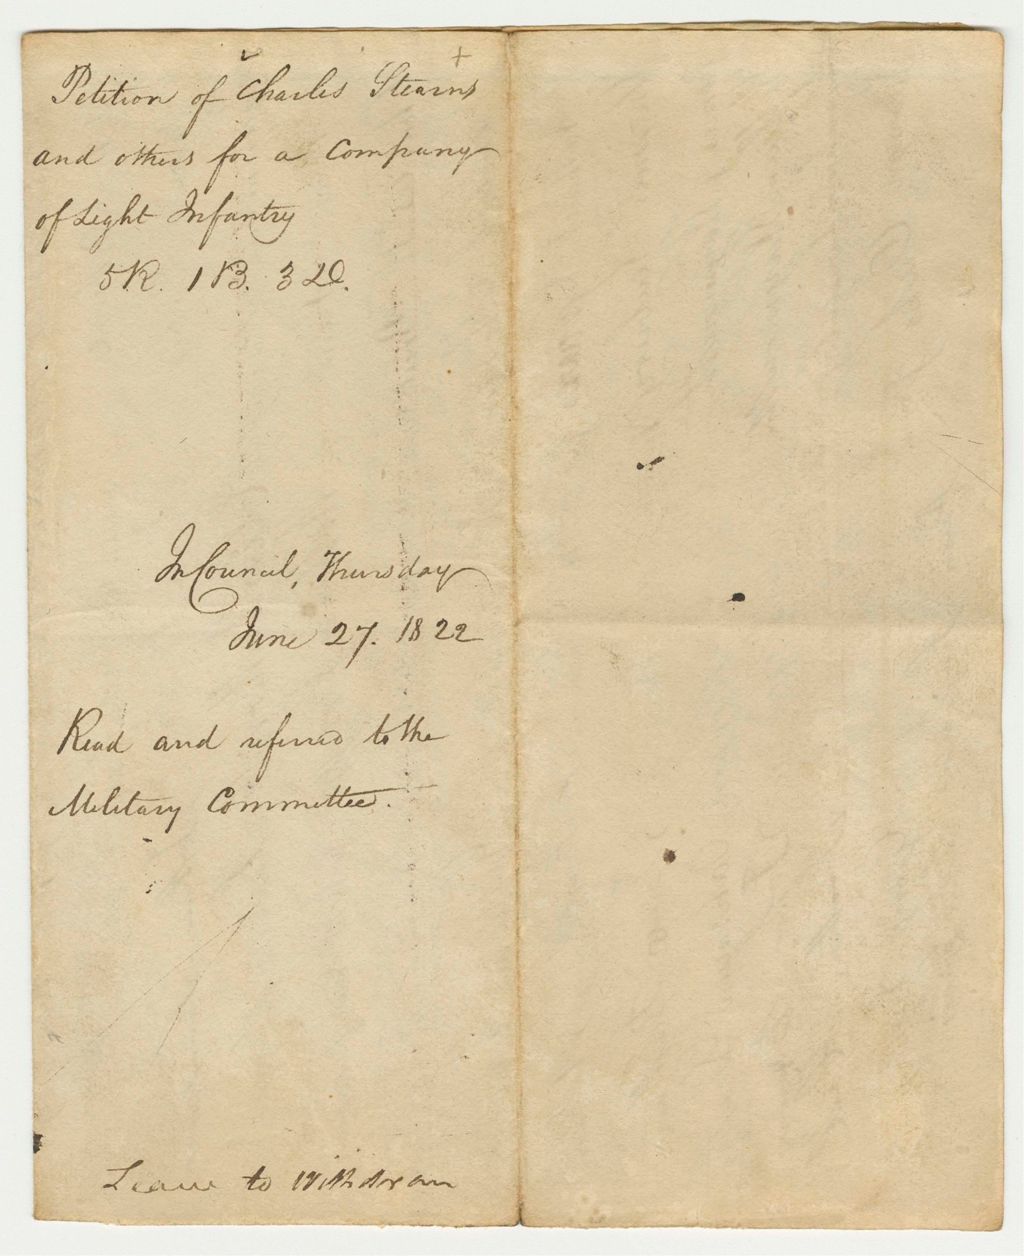 Petition of Charles Stearns
and others for a Company
of Light Infantry
5 R. 1 B. 3 D.
In Council, Thursday
June 27. 1822
Read and referred to the
Military Committee.
Leave to Withdraw